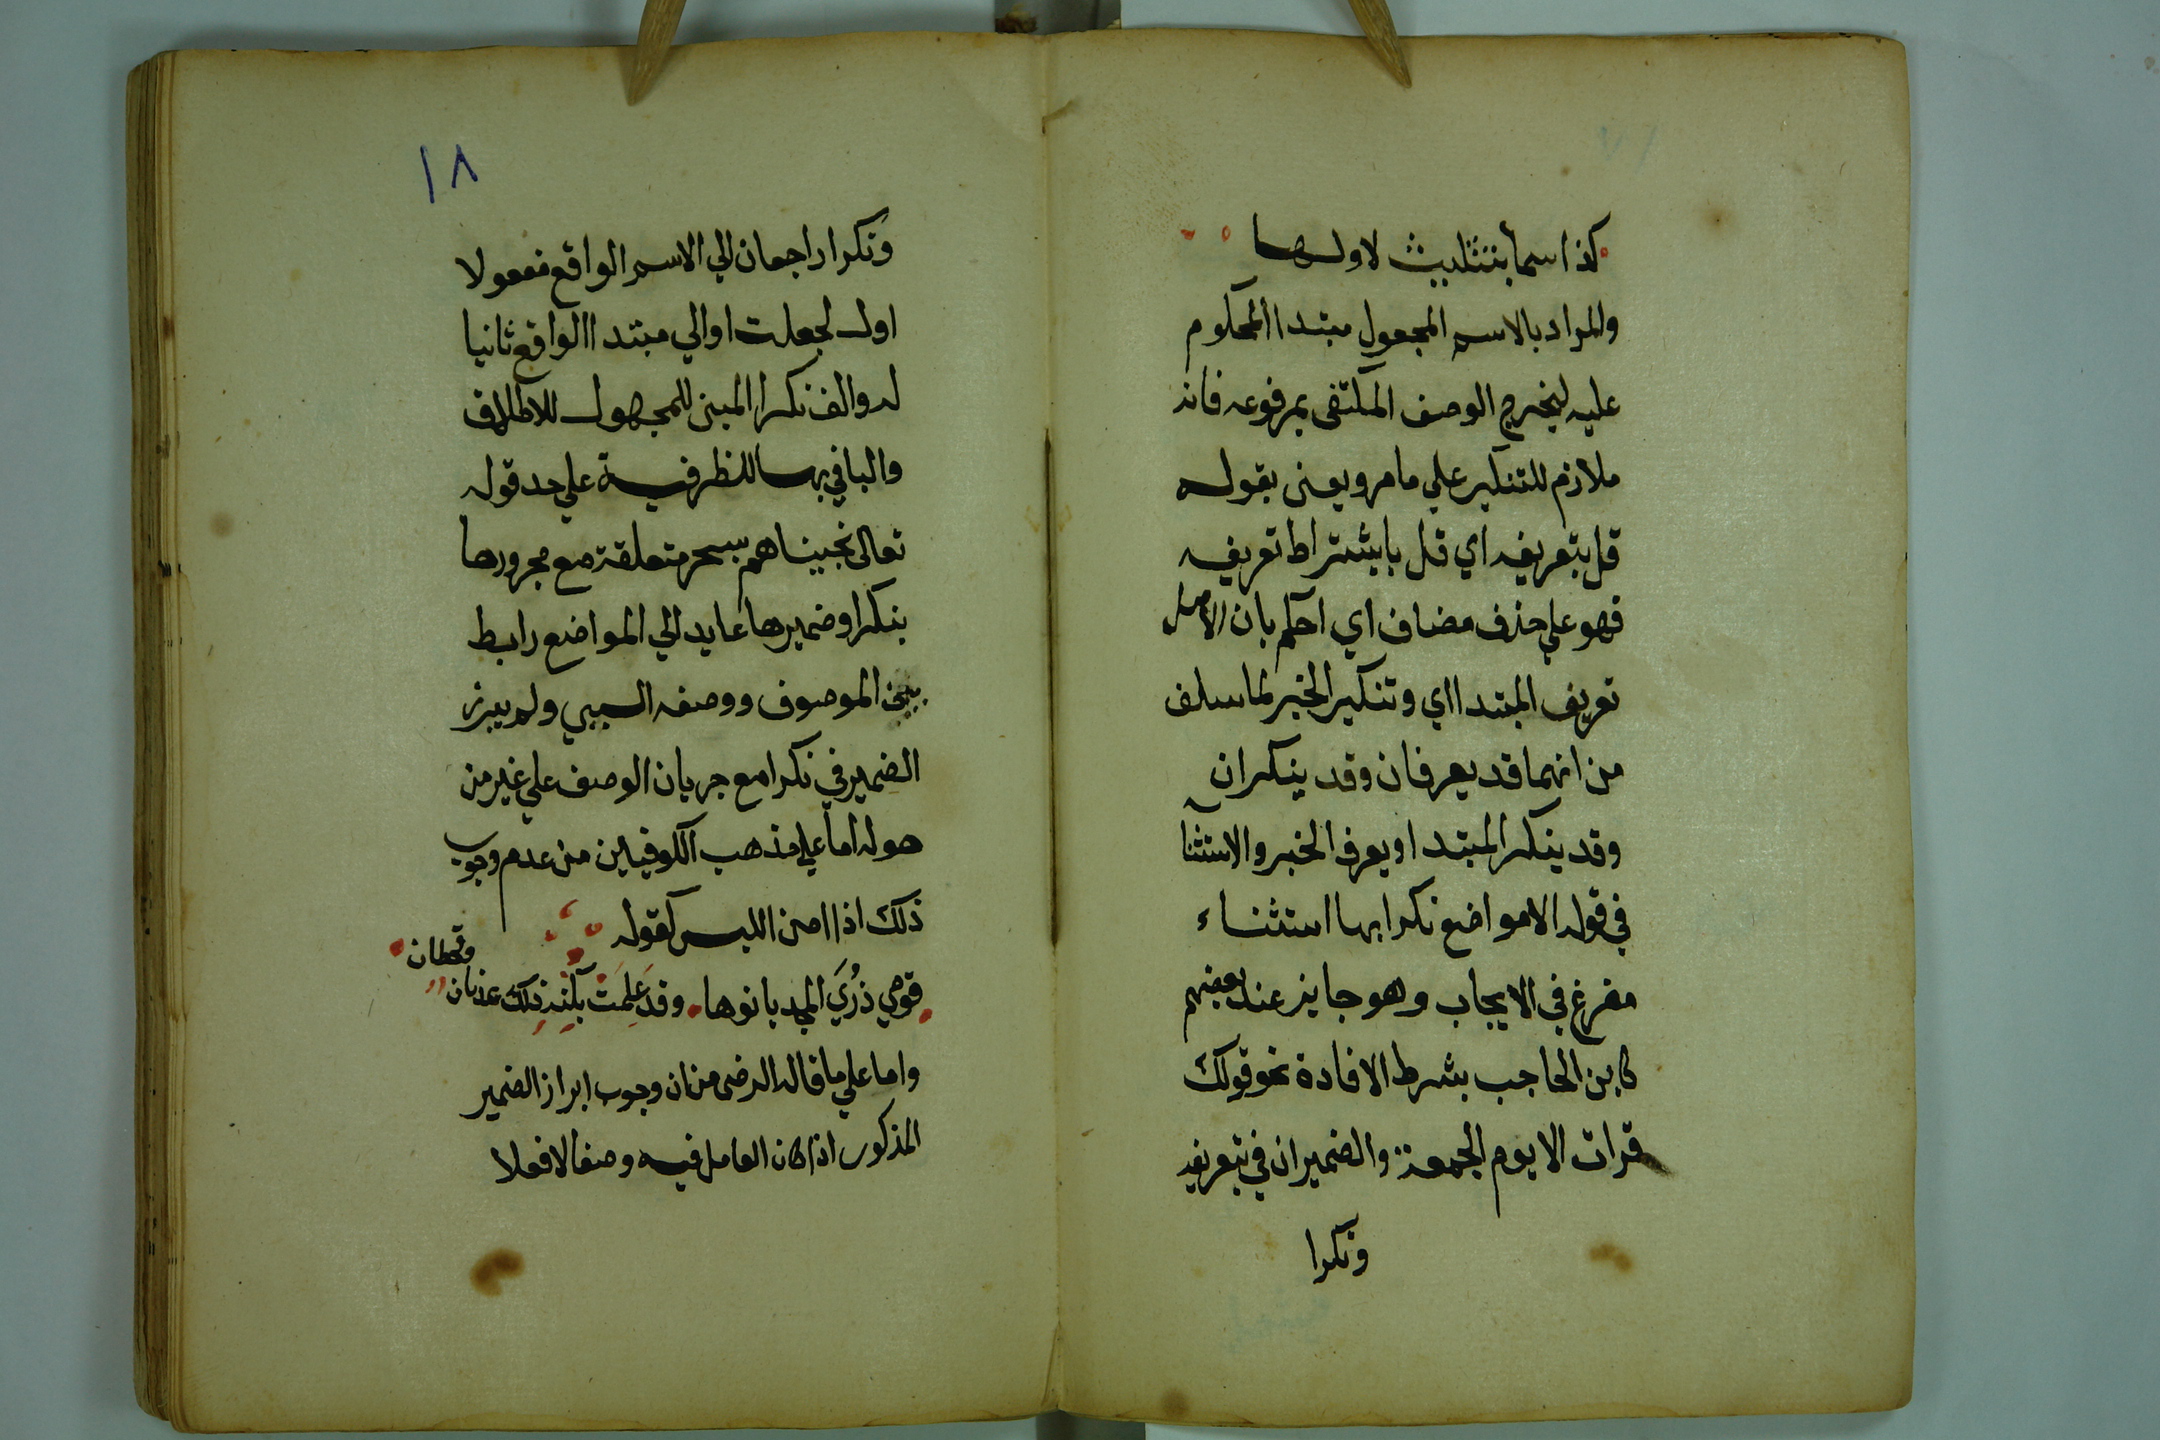 كذا سما بتثليث لاولها
والمراد بالاسم المجعول مبتدا المحكوم
عليه ليخرج الوصف المكتفى بمرفوعه فانه
ملازم للتنكير علي ما مر ويعنى بقوله
قل بتعريفه اي قل باشتراط تعريفه
فهو علي حذف مضاف اي احكم بان الاصل
تعريف المبتدا اي وتنكير الخبر لما سلف
من انهما قد يعرفان وقد ينكران
وقد ينكر المبتدا ويعرف الخبر والاستثنا
في قوله الا مواضع نكرا بها استثناء
مفرغ في الايجاب وهو جايز عند بعضهم
كابن الحاجب بشرط الافادة نحو قولك
قرات الا يوم الجمعة والضميران في بتعريفه
ونكرا
١٨
ونكرا راجعان الي الاسم الواقع مفعولا
اول لجعلت او الي مبتدا الواقع ثانيا
له والف نكرا المبنى للمجهول للاطلاق
والبا في بها للظرفية علي حد قوله
تعالى نجيناهم بسحر متعلقة مع مجرورها
بنكرا وضميرها عايد الي المواضع رابط
بين الموصوف ووصفه السببي ولم يبرز
الضمير في نكرا مع جريان الوصف علي غير من
هو له اما علي مذهب الكوفيين من عدم وجوب
ذلك اذا امن اللبس كقوله
قومي ذُرَي المجد بانوها وقد عَلِمَتْ بكُنْهِ ذلك عدنان وقحطان
واما علي ما قاله الرضى من ان وجوب ابراز الضمير
المذكور اذا كان العامل فيه وصفا لا فعلا